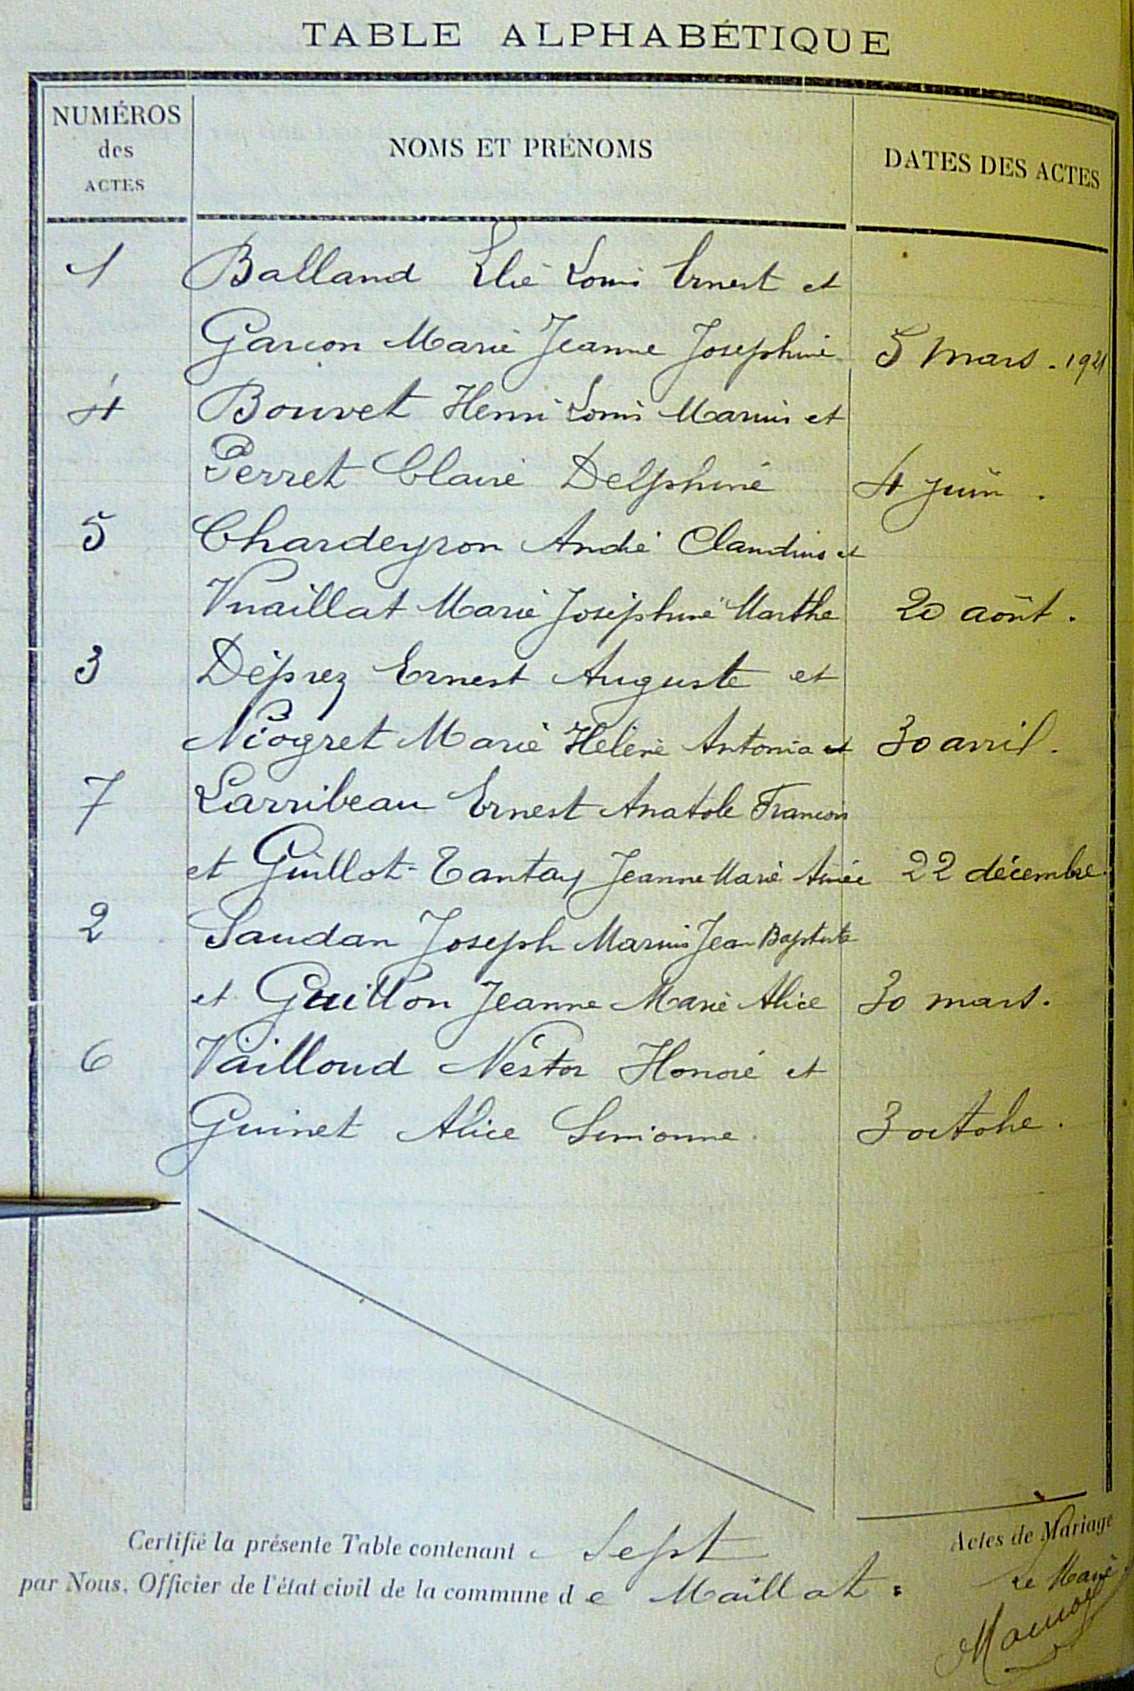 TABLE ALPHABÉTIQUE
NUMÉROS des ACTES
NOMS ET PRÉNOMS
DATES DES ACTES
1 Balland Elie Louis Ernest et
Garcon Marie Jeanne Josephine 5 mars . 1921
4 Bouvet Henri Louis Marius et
Perret Claire Delphine 4 juin .
5 Chardeyron André Claudius et
Vuaillat Marie Joséphine Marthe 20 août .
3 Déprez Ernest Auguste et
Niogret Marie Hélène Antonia et 30 avril .
7 Larribeau Ernest Anatole Francois
et Guillot-Tantay Jeanne Marie Aimée 22 décembre.
2 Saudan Joseph Marius Jean Baptiste
et Guillon Jeanne Marie Alice 30 mars.
6 Vailloud Nestor Honoré et
Guinet Alice Simonne 3 octobre .
Certifié la présente Table contenant Sept Actes de Mariage
par Nous, Officier de l'état civil de la commune de Maillat . Le Maire